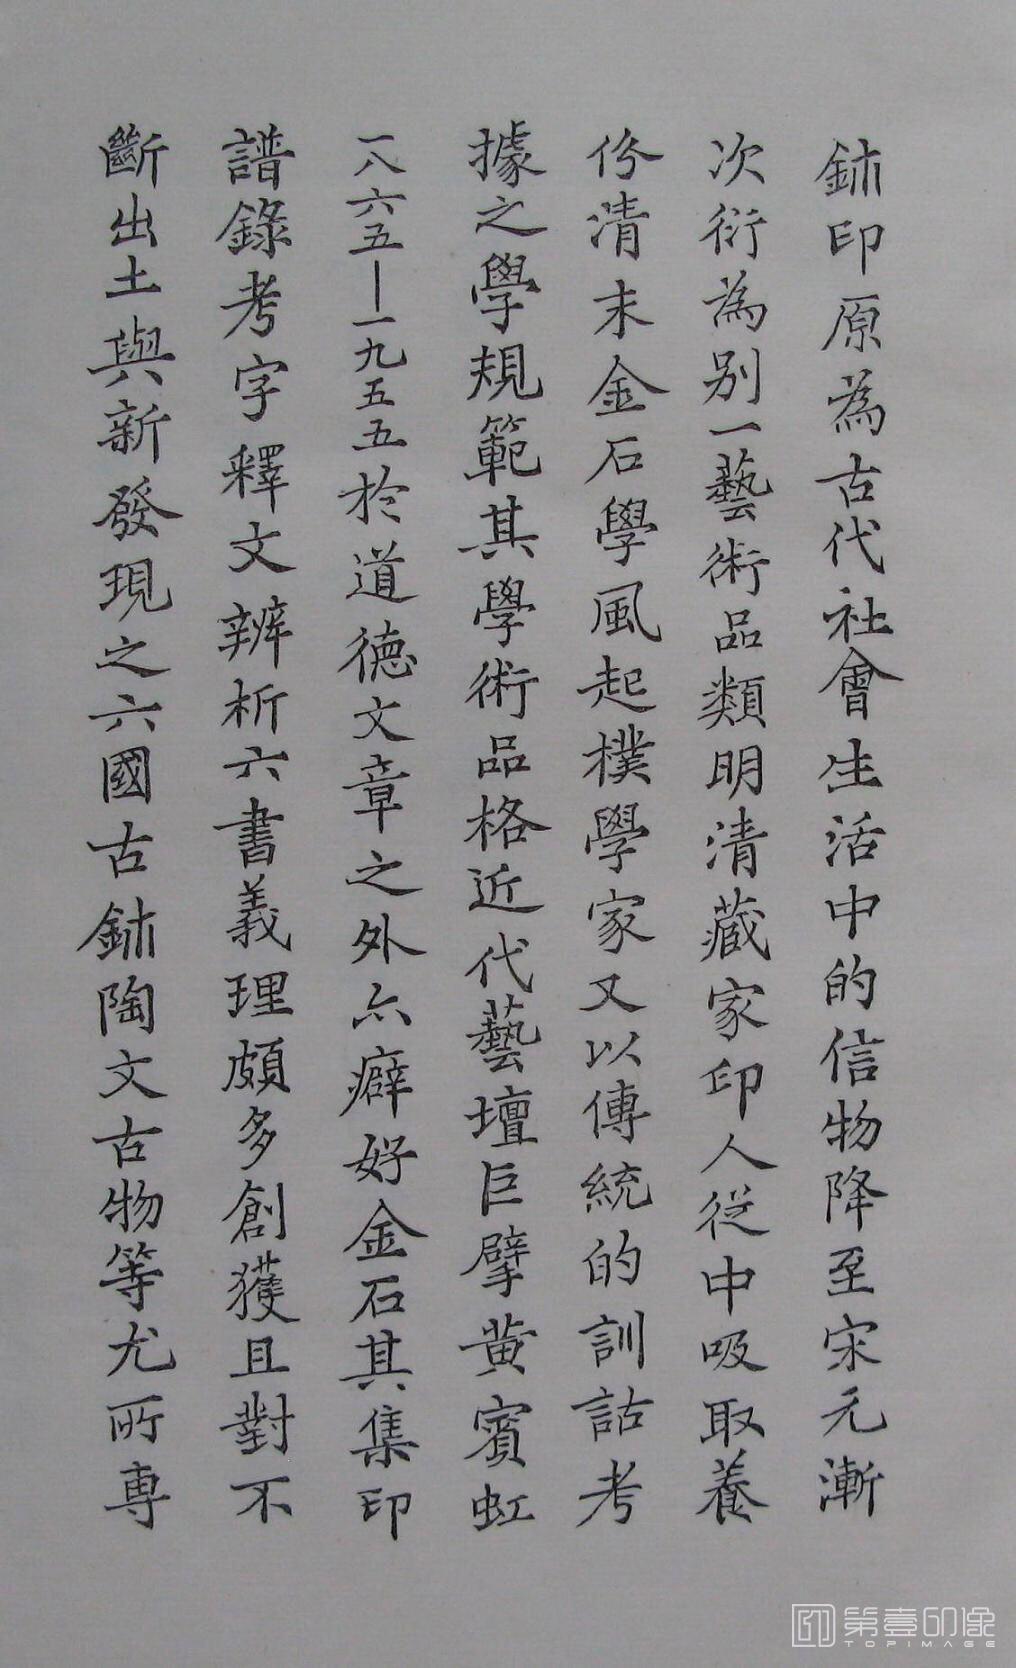 鉥印原為古代社會生活中的信物降至宋元漸
次衍為别一藝術品類明清藏家印人従中吸取養
份清末金石學風起樸學家又以傳統的訓詁考
據之學規範其學術品格近代藝壇巨擘黄賓虹
一八六五—一九五五於道德文章之外亦癖好金石其集印
譜錄考字釋文辨析六書義理頗多創獲且對不
斷出土與新發現之六國古鉥陶文古物等尤所専
第壹印像
TOPIMAGE